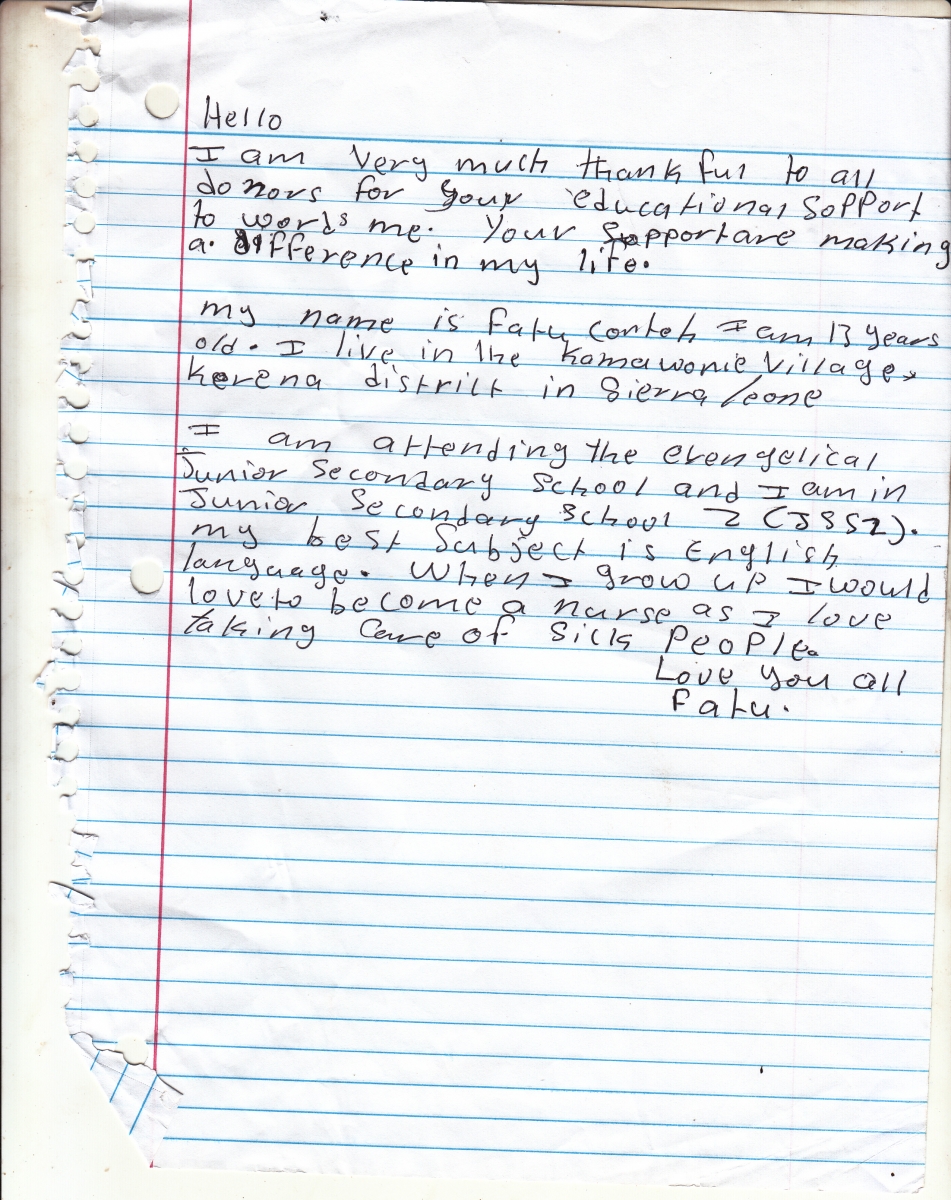 Hello
I am very much thankful to all
donors for your educational Sopport
to words me. Your Support are making
a. difference in my life.
my name is Fatu Conteh I am 13 years
old. I live in the Kamawonie Village,
Kerena district in Sierra leone
I am attending the evengelical
Junior Secondary School and I am in
Junior Secondary School 2 (JSS2).
my best Subject is English
language. When I grow up I would
love to become a nurse as I love
taking Care of Sick People.
Love you all
Fatu.